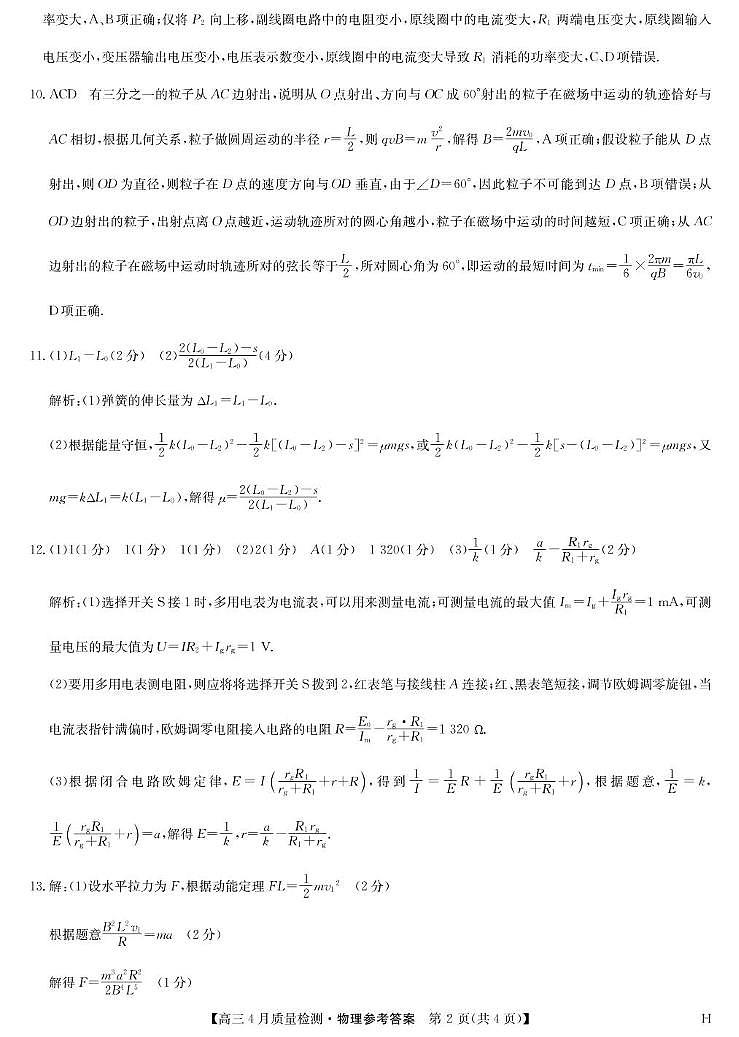 率变大,A、B项正确;仅将 P₂ 向上移,副线圈电路中的电阻变小,原线圈中的电流变大,R₁ 两端电压变大,原线圈输入
电压变小,变压器输出电压变小,电压表示数变小,原线圈中的电流变大导致 R₁ 消耗的功率变大,C、D项错误.
10. ACD 有三分之一的粒子从 AC 边射出,说明从 O 点射出、方向与 OC 成 60°射出的粒子在磁场中运动的轨迹恰好与
AC 相切,根据几何关系,粒子做圆周运动的半径 r=L/2,则 qvB=m v²/r,解得 B=2mv₀/qL,A项正确;假设粒子能从 D 点
射出,则 OD 为直径,则粒子在 D 点的速度方向与 OD 垂直,由于∠D=60°,因此粒子不可能到达 D 点,B项错误;从
OD 边射出的粒子,出射点离 O 点越近,运动轨迹所对的圆心角越小,粒子在磁场中运动的时间越短,C项正确;从 AC
边射出的粒子在磁场中运动时轨迹所对的弦长等于L/2,所对圆心角为 60°,即运动的最短时间为 tₘᵢₙ=1/6×2πm/qB=πL/6v₀,
D项正确.
11. (1)L₁−L₀(2分) (2)2(L₀−L₂)−s/2(L₁−L₀)(4分)
解析:(1)弹簧的伸长量为 ΔL₁=L₁−L₀.
(2)根据能量守恒,1/2k(L₀−L₂)²−1/2k[(L₀−L₂)−s]²=μmgs,或1/2k(L₀−L₂)²−1/2k[s−(L₀−L₂)]²=μmgs,又
mg=kΔL₁=k(L₁−L₀),解得 μ=2(L₀−L₂)−s/2(L₁−L₀).
12. (1)1(1分) 1(1分) 1(1分) (2)2(1分) A(1分) 1 320(1分) (3)1/k(1分) a/k−R₁r_g/(R₁+r_g)(2分)
解析:(1)选择开关 S 接 1 时,多用电表为电流表,可以用来测量电流;可测量电流的最大值 Iₘ=I_g+I_g r_g/R₁=1 mA,可测
量电压的最大值为 U=IR₂+I_g r_g=1 V.
(2)要用多用电表测电阻,则应将将选择开关 S 拨到 2,红表笔与接线柱 A 连接;红、黑表笔短接,调节欧姆调零旋钮,当
电流表指针满偏时,欧姆调零电阻接入电路的电阻 R=E₀/Iₘ−r_g·R₁/(r_g+R₁)=1 320 Ω.
(3)根据闭合电路欧姆定律,E=I(r_gR₁/(r_g+R₁)+r+R),得到1/I=1/E R+1/E(r_gR₁/(r_g+R₁)+r),根据题意,1/E=k,
1/E(r_gR₁/(r_g+R₁)+r)=a,解得 E=1/k,r=a/k−R₁r_g/(R₁+r_g).
13. 解:(1)设水平拉力为 F,根据动能定理 FL=1/2mv₁² (2分)
根据题意B²L²v₁/R=ma (2分)
解得 F=m³a²R²/2B⁴L⁵ (1分)
【高三4月质量检测·物理参考答案 第2页(共4页)】 H